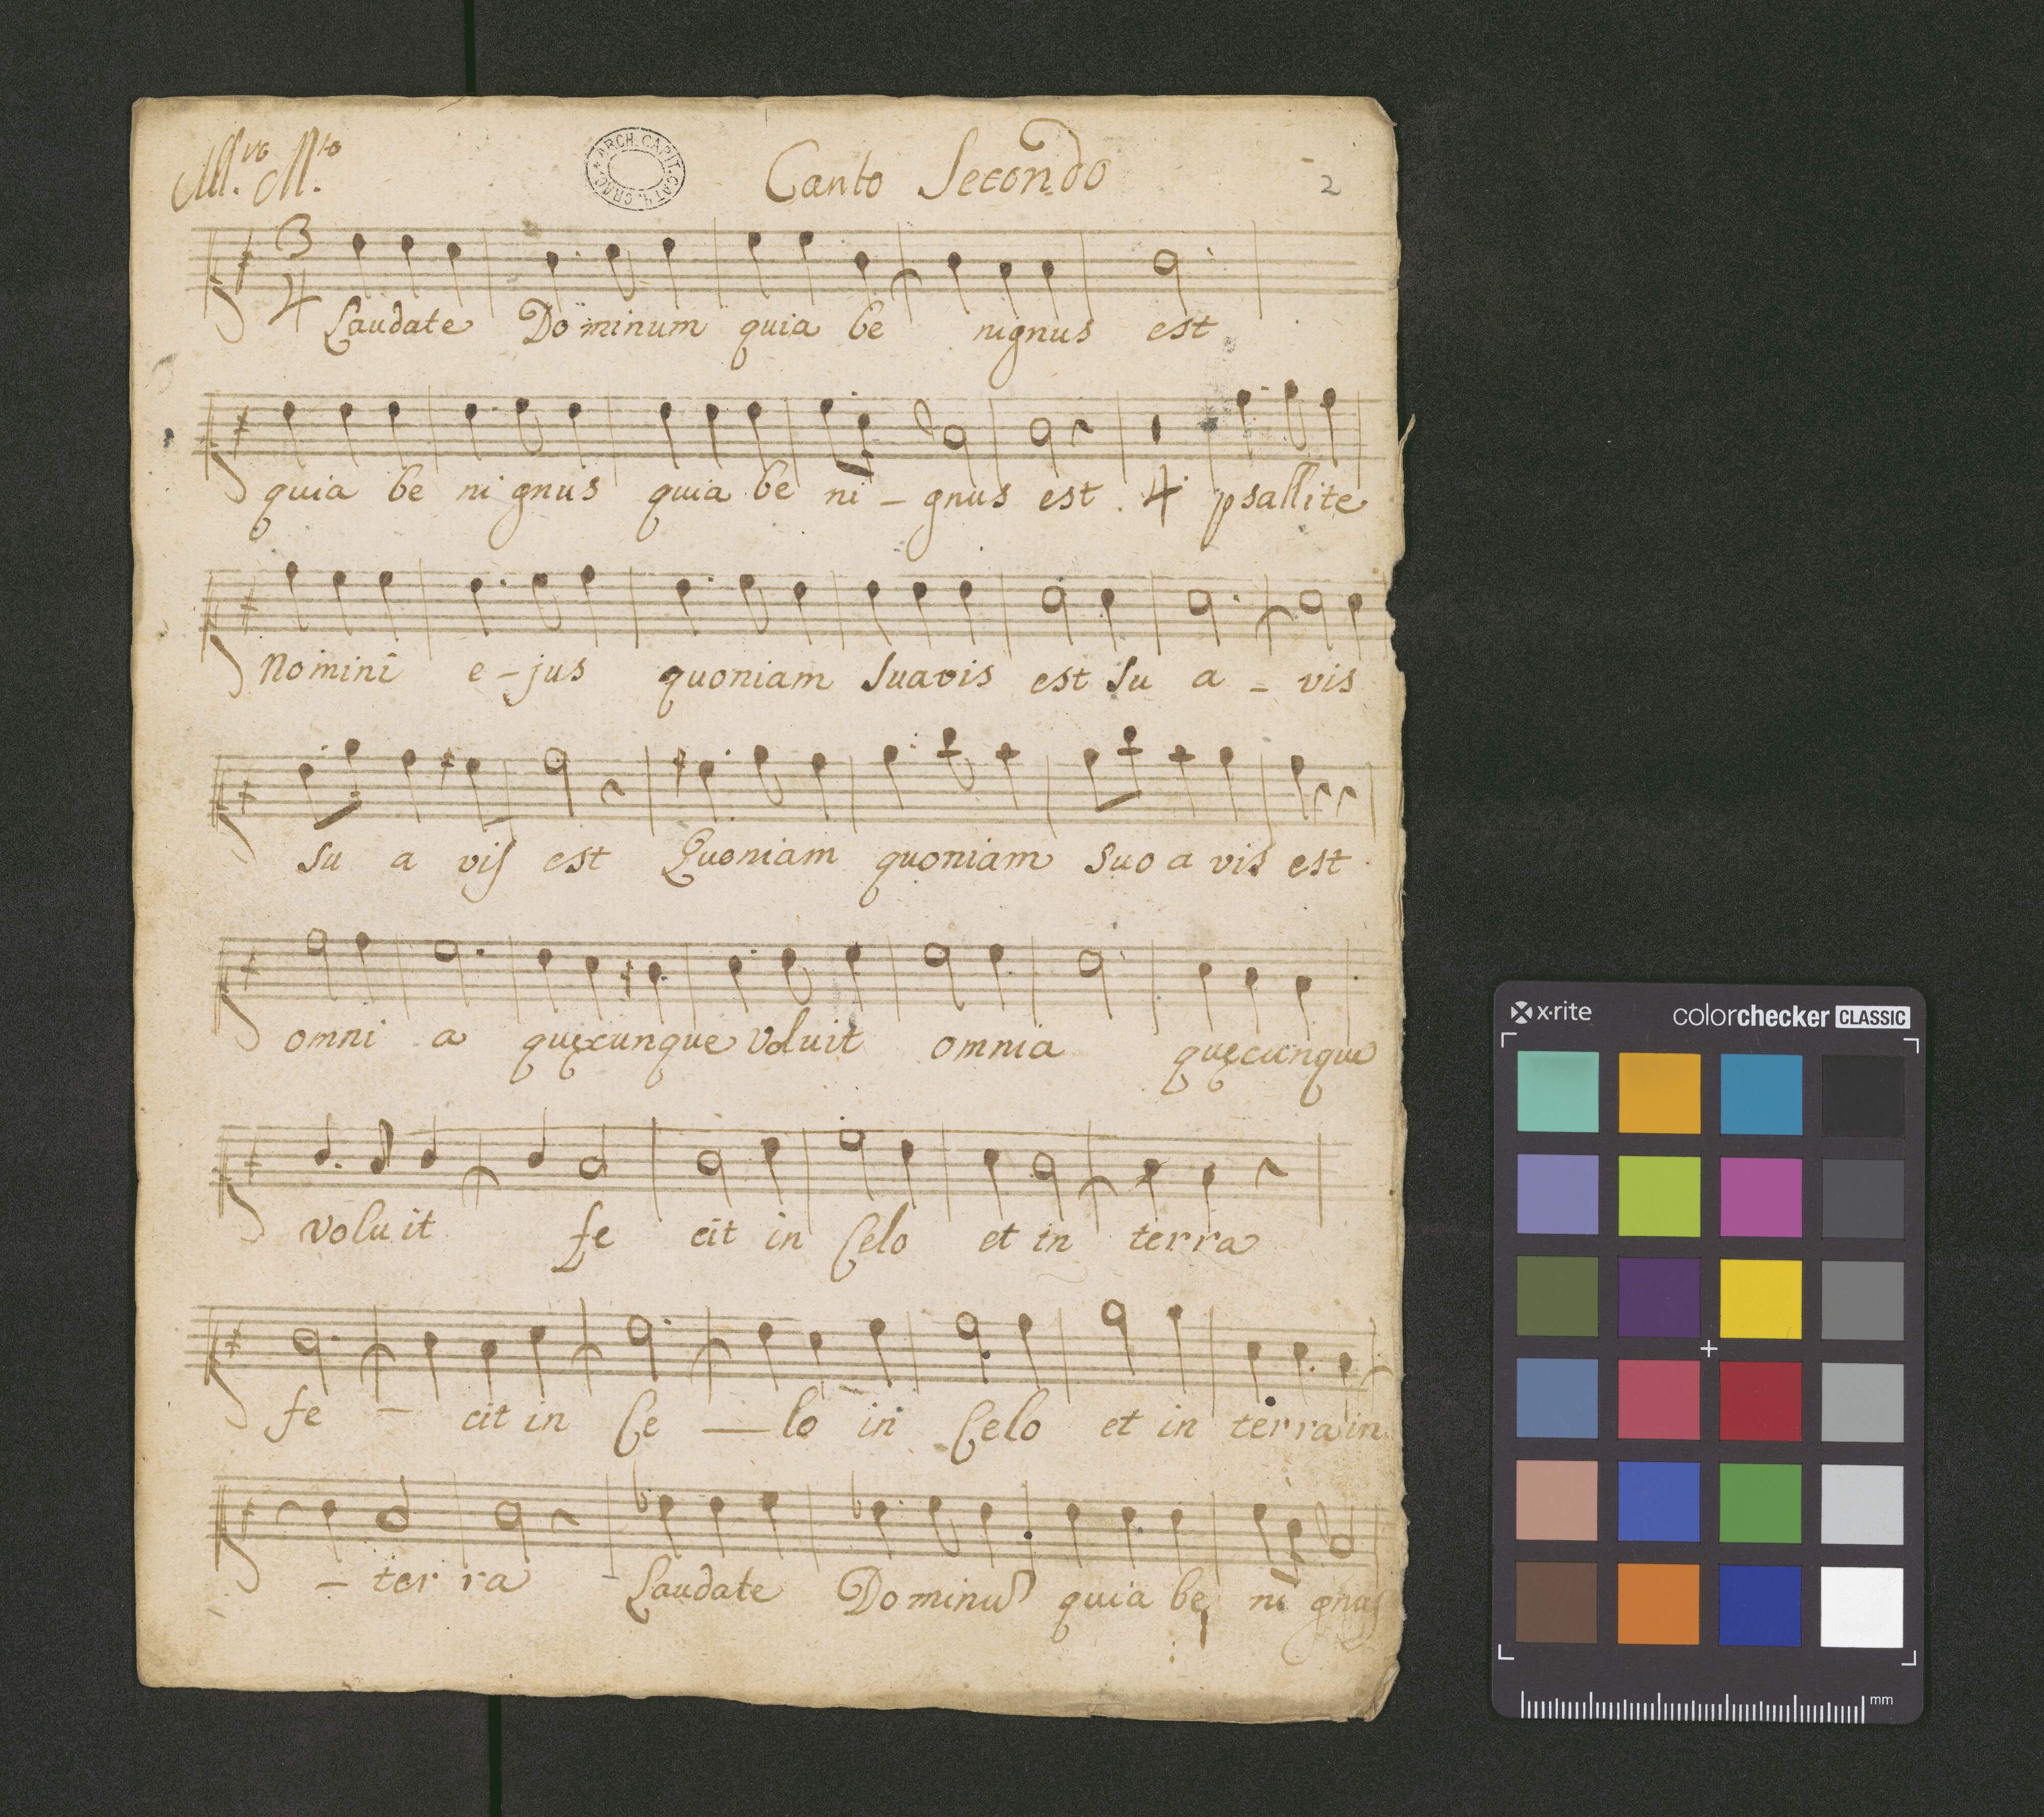 All.ro M.to Canto Secondo 2
ARCH. CAPIT. CATH. CRAC.
3
4
Laudate Dominum quia be nignus est
quia be nignus quia be ni - gnus est . 4 psallite
Nomini e - jus quoniam Suavis est Su a - vis
Su a vis est Quoniam quoniam Suo a vis est
omni a quęcunque voluit omnia quęcunque
voluit fe cit in Celo et in terra
fe - cit in Ce — lo in Celo et in terra in
- ter ra - Laudate Dominu quia be ni gnus
x·rite colorchecker CLASSIC
mm